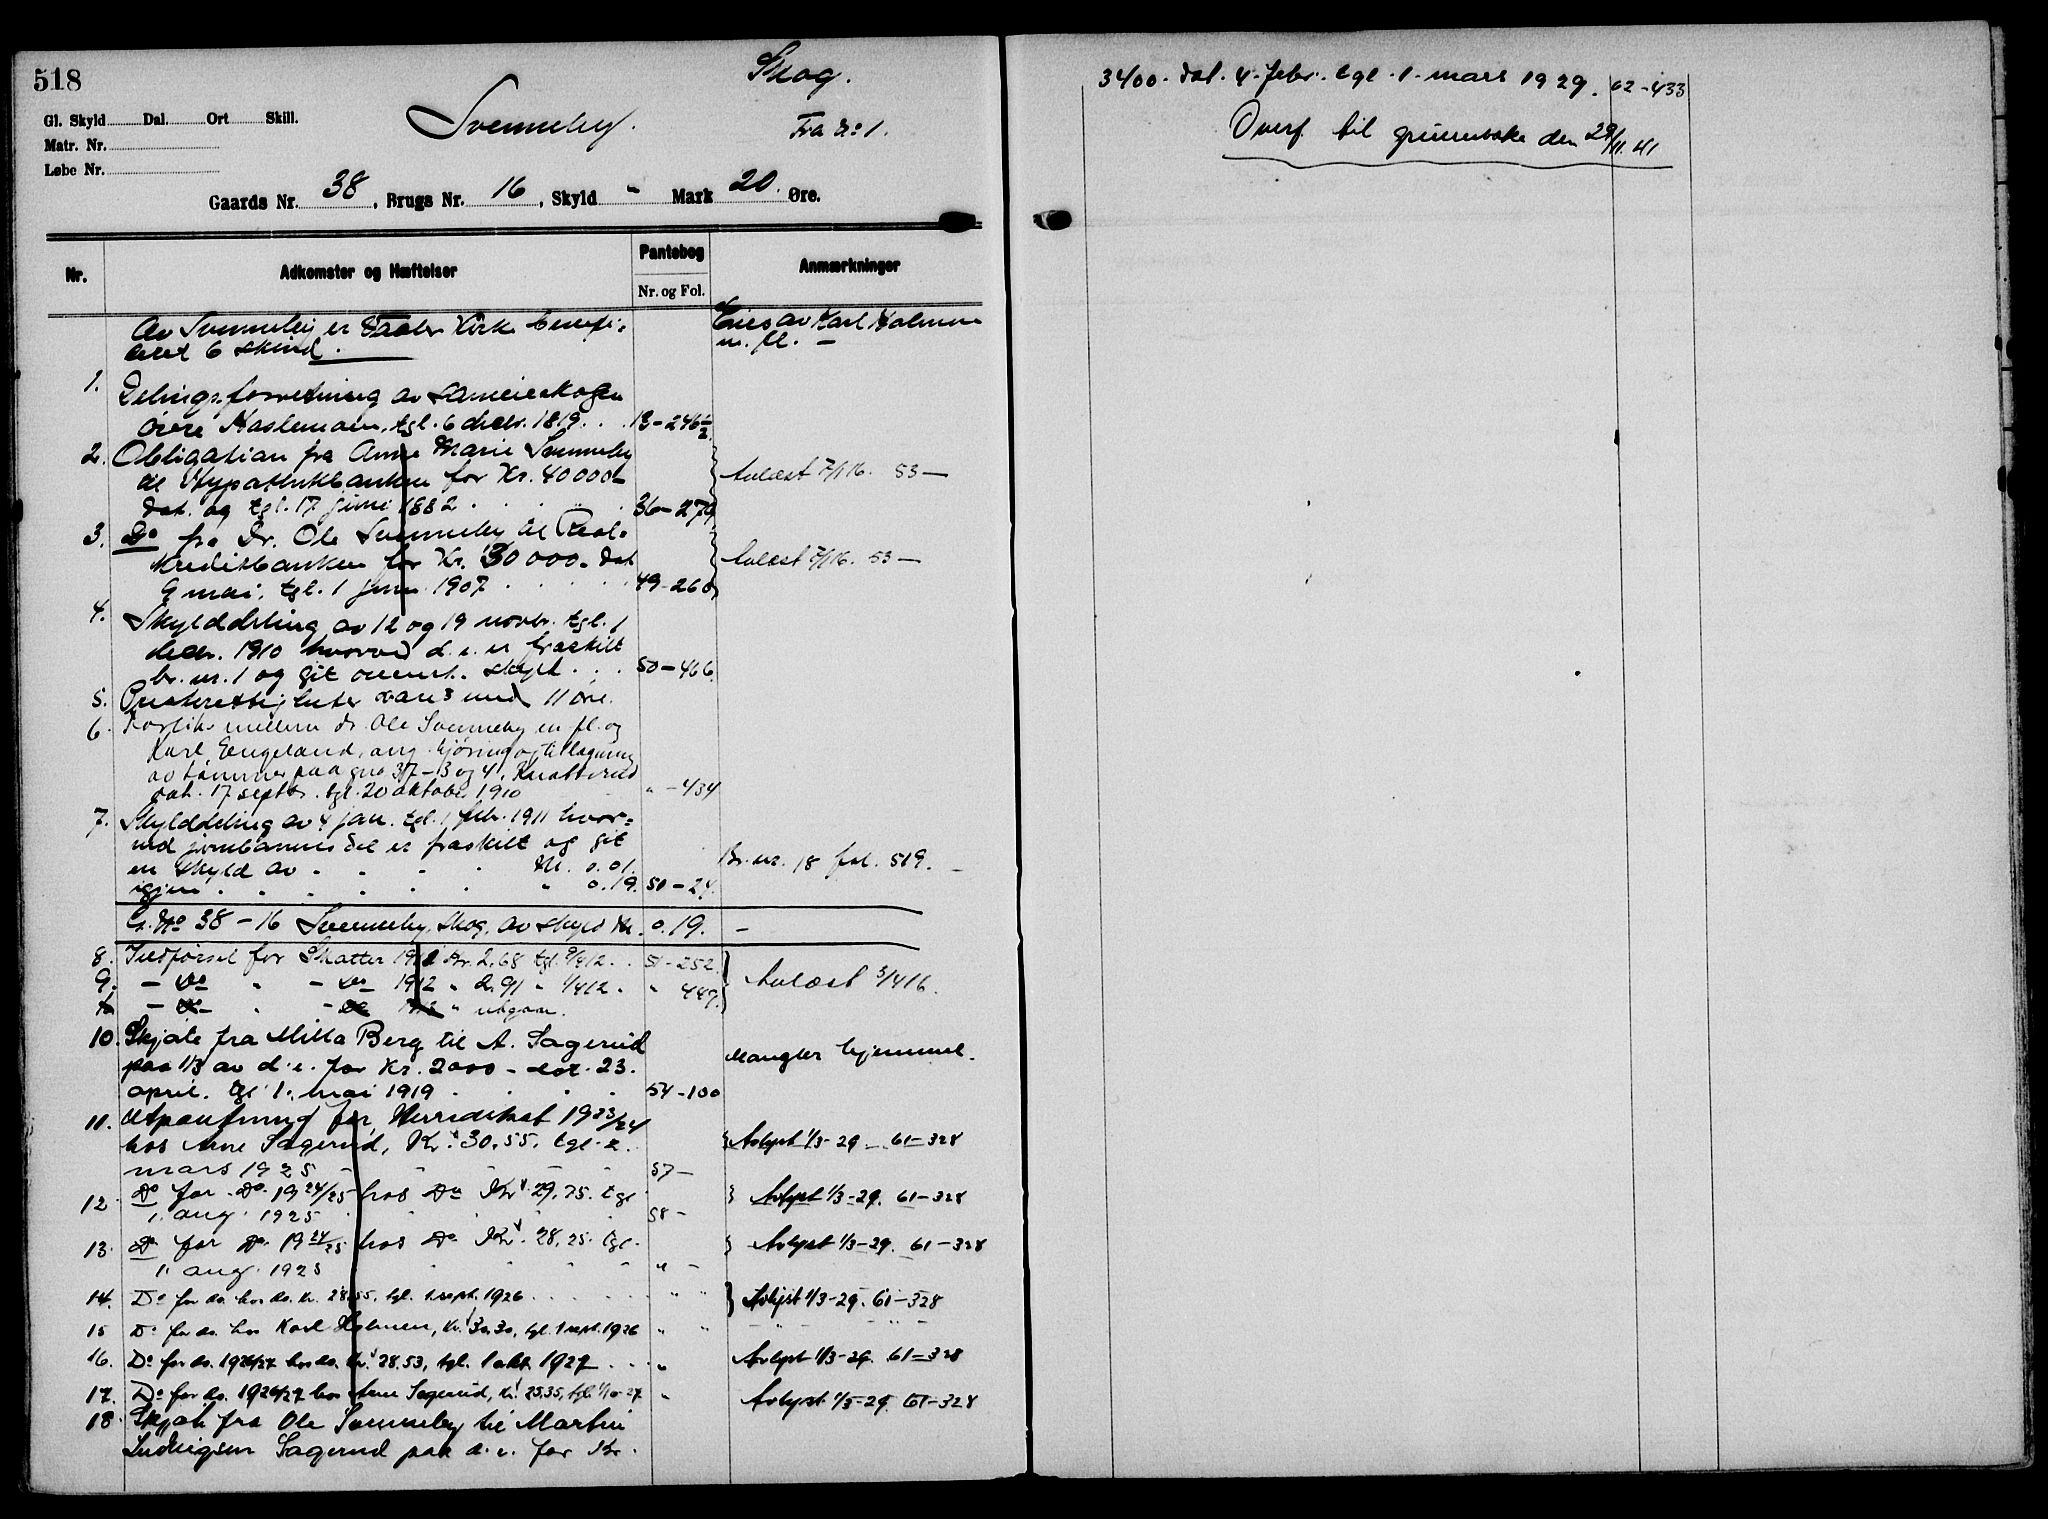 518
Skog.
Gl. Skyld Dal. Ort Skill.
Svenneby.
Fra no 1.
Matr. Nr.
Løbe Nr.
Gaards Nr. 38, Brugs Nr. 16, Skyld " Mark 20. Øre.
Nr. Adkomster og Hæftelser Pantebog Nr. og Fol. Anmærkninger
Av Svenneby er Vaaler Kirke benefi- Eies av Karl Holmen
ceret 6 skind. m. fl. —
1. Delingsforretning av Sameieskogen
øvre Haslemoen, tgl. 6 decbr. 1819. . . 13-246½
2. Obligation fra Anne Marie Svenneby
til Hypothekbanken for Kr. 40000- Avlæst 7/1 16. 53 —
dat. og tgl. 17 juni 1882 . . . . 36-279
3. Do fra Dr. Ole Svenneby til Real-
kreditbanken for Kr. 30000. dat Avlæst 7/1 16. 53 —
9 mai, tgl. 1 juni 1907 . . . . 49-260
4. Skylddeling av 12 og 19 novbr. tgl. 1
decbr. 1910 hvorved d. e. er fraskilt
br. nr. 1 og git ovennt. skyld . . . 50-466.
5. med 11 øre.
6. Forlik mellem dr. Ole Svenneby m. fl. og
Karl Engeland, ang. kjøring og tillægning
av tømmer paa gno 37-3 og 4, Knatterud
dat. 17 septbr. tgl. 20 oktober 1910 " -434
7. Skylddeling av 4 jan. tgl. 1 febr. 1911 hvor-
ved jernbanens del er fraskilt og git
en skyld av . . . . Mk. 0.01. Br. nr. 18 fol. 519. —
igjen . . . . . " 0.19. 51-24.
G. No 38-16 Svenneby Skog, av skyld Mk. 0.19. —
8. Utlæg for Skatter 1911 Kr. 2,68 tgl. 9/1 12 . . 51-252.
9. — Do " — Do 1912 " 2.91 " 1/4 12. " 447. Avlæst 3/4 16.
10 — Do " - Do 1912 " utgaar.
10. Skjøte fra Milla Berg til A. Sagerud
paa 1/3 av d. e. for Kr. 2000 - dat. 23. Mangler hjemmel.
april. tgl 1. mai 1919 . . . . 54-100
11. Utpantning for Herredskat 1923/24
hos Arne Sagerud, Kr. 30.55. tgl. 2. Avlyst 1/3-29 — 61-328
mars 1925 - - - - - 57 -
12. Do for Do 1924/25 hos Do Kr. 29.75. tgl Avlyst 1/3-29. 61-328
1. aug. 1925 58 -
13. Do for Do 1924/25 hos Do Kr. 28.25. tgl. Avlyst 1/3-29. 61-328
1. aug. 1925 " -
14. Do for do. hos do. Kr. 28.55. tgl. 1 sept. 1926 . . . . " " Avlyst 1/3-29. 61-328
15 Do for do. hos Karl Holmen, kr. 30,30, tgl. 1 sept. 1926 " " - " - " - " - "
16. Do for do. 1926/27 hos do. Kr. 28.53, tgl. 1 okt. 1927 . . . " Avlyst 1/3-29. 61-328
17. Do for do. 1926/27 hos Arne Sagerud, kr. 25,35, tgl. 1/10-27. " Avlyst 1/3-29. 61-328
18 Skjøte fra Ole Svenneby til Martin
Ludvigsen Sagerud paa d. e. for Kr.
3400. dat. 4. febr. tgl. 1. mars 1929. 62-433
Overf. til grunnboka den 29/11.41